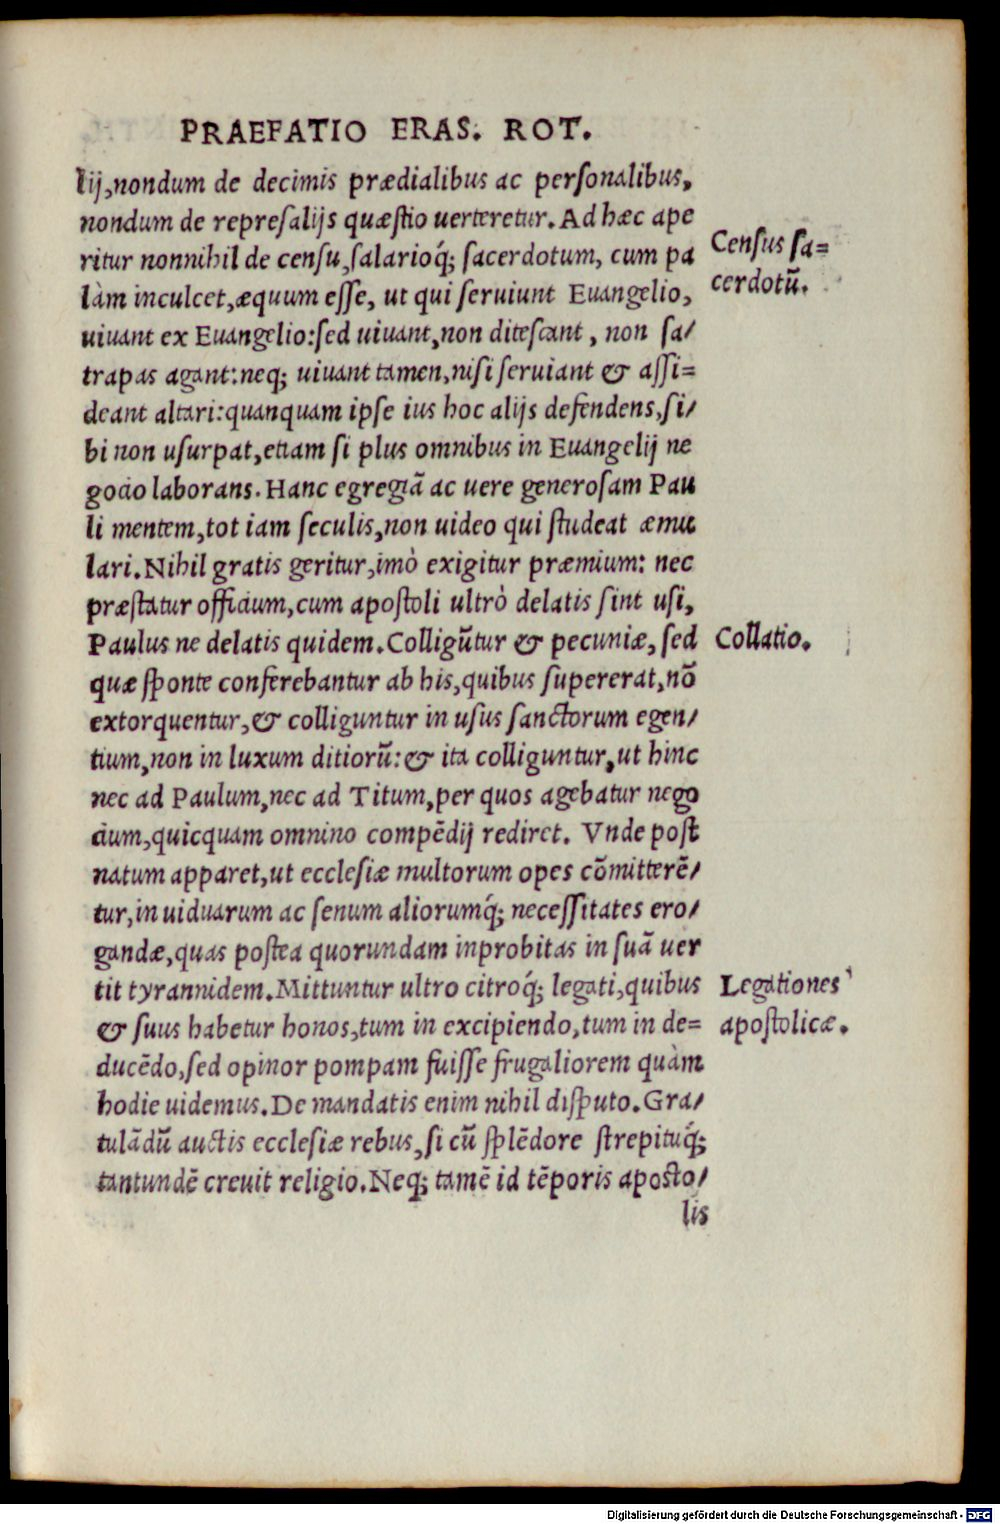 PRAEFATIO ERAS. ROT.
lij, nondum de decimis prædialibus ac personalibus,
nondum de represalijs quæstio uerteretur. Ad hæc ape
ritur nonnihil de censu, salarioq́; sacerdotum, cum pa
làm inculcet, æquum esse, ut qui seruiunt Euangelio,
uiuant ex Euangelio: sed uiuant, non ditescant, non sa/
trapas agant: neq; uiuant tamen, nisi seruiant & assi=
deant altari: quanquam ipse ius hoc alijs defendens, si/
bi non usurpat, etiam si plus omnibus in Euangelij ne
gocio laborans. Hanc egregiã ac uere generosam Pau
li mentem, tot iam seculis, non uideo qui studeat æmu
lari. Nihil gratis geritur, imò exigitur præmium: nec
præstatur officium, cum apostoli ultrò delatis sint usi,
Paulus ne delatis quidem. Colligũtur & pecuniæ, sed
quæ sponte conferebantur ab his, quibus supererat, nõ
extorquentur, & colliguntur in usus sanctorum egen/
tium, non in luxum ditiorũ: & ita colliguntur, ut hinc
nec ad Paulum, nec ad Titum, per quos agebatur nego
cium, quicquam omnino compẽdij rediret. Vnde post
natum apparet, ut ecclesiæ multorum opes cõmitterẽ/
tur, in uiduarum ac senum aliorumq́; necessitates ero/
gandæ, quas postea quorundam inprobitas in suã uer
tit tyrannidem. Mittuntur ultro citroq́; legati, quibus
& suus habetur honos, tum in excipiendo, tum in de=
ducẽdo, sed opinor pompam fuisse frugaliorem quàm
hodie uidemus. De mandatis enim nihil disputo. Gra/
tulãdũ auctis ecclesiæ rebus, si cũ splẽdore strepituq́;
tantundẽ creuit religio. Neq; tamẽ id tẽporis aposto/
lis
Census sa=
cerdotũ.
Collatio.
Legationes
apostolicæ.
Digitalisierung gefördert durch die Deutsche Forschungsgemeinschaft - DFG